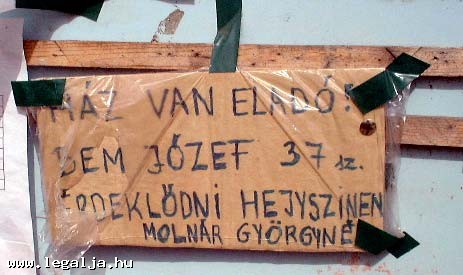 HÁZ VAN ELADÓ!
BEM JÓZEF 37 sz.
ÉRDEKLŐDNI HEJYSZINEN
MOLNÁR GYÖRGYNÉ
www.legalja.hu